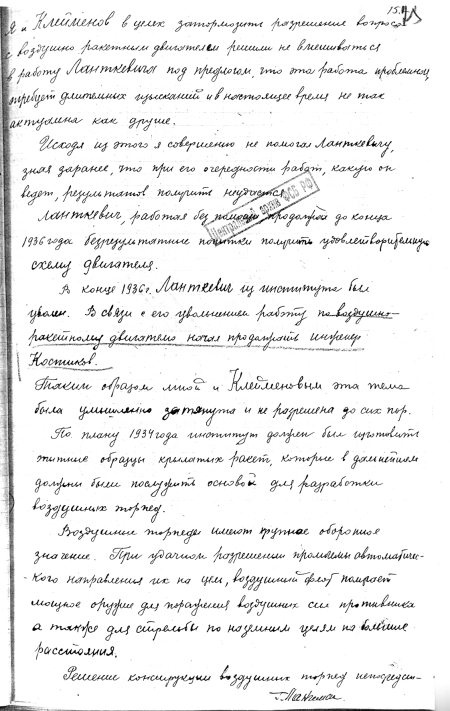 15.
Я и Клейменов в целях затормозить разрешение вопроса
с воздушно ракетным двигателем решили не вмешиваться
в работу Ланткевича под предлогом, что эта работа проблемная,
требует длительных изысканий и в настоящее время не так
актуальна как другие.
Исходя из этого я совершенно не помогал Ланткевичу,
зная заранее, что при его очередности работ, какую он
ведет, результатов получить неудастся.
Ланткевич, работая без помощи продолжал до конца
1936 года безрезультатные попытки получить удовлетворительную
схему двигателя.
В конце 1936г. Ланткевич из института был
уволен. В связи с его увольнением работу по воздушно-
ракетному двигателю начал продолжать инженер
Костиков.
Таким образом мной и Клейменовым эта тема
была умышленно затянута и не разрешена до сих пор.
По плану 1934 года институт должен был изготовить
образцы крылатых ракет, которые в дальнейшем
должны были послужить основой для разработки
воздушных торпед.
Воздушные торпеды имеют крупное оборонное
значение. При удачном разрешении проблемы автоматичес-
кого направления их на цель, воздушный флот получает
мощное оружие для поражения воздушных сил противника
а также для стрельбы по наземным целям на большие
расстояния.
Решение конструкции воздушных торпед непосредст-
Г. Лангемак
Центральный архив ФСБ РФ